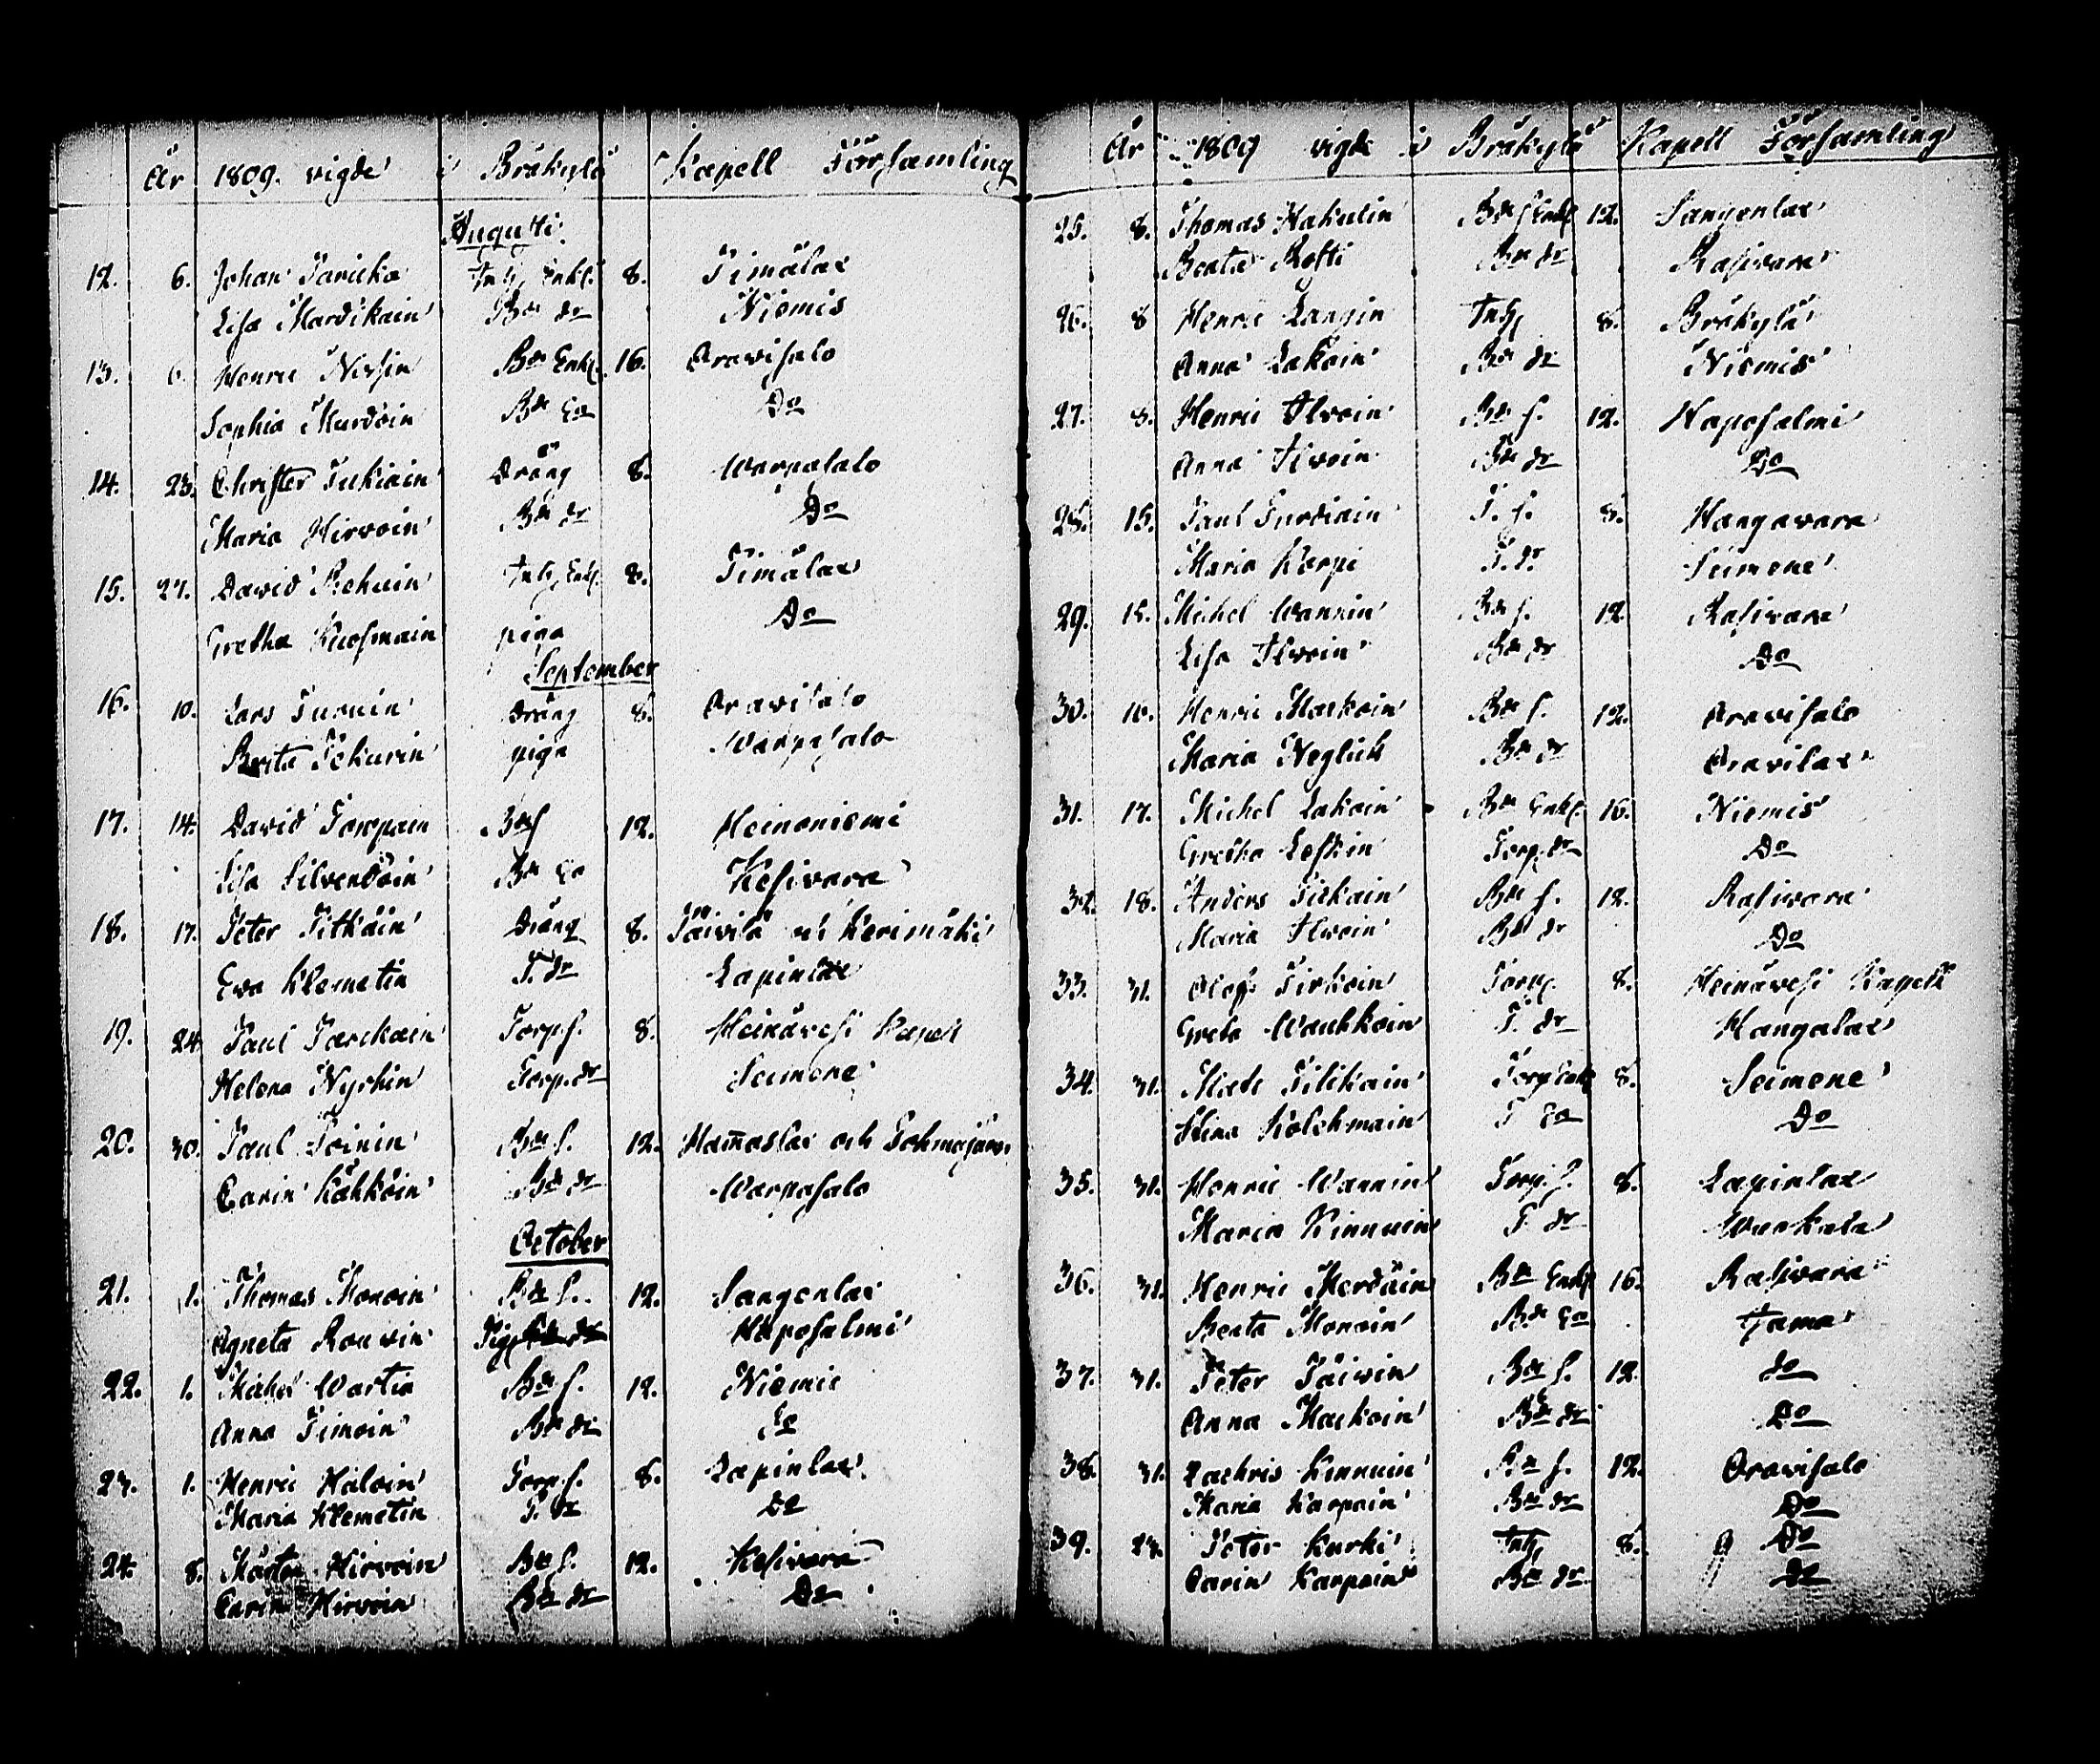 År 1809. vigde i Bräkylä Kapell Församling
Augusti.
12. 6. Johan Paricka Inh. Enkl. 8. Timålax
Lisa Mardikain Bde dr Niemis
13. 6. Henric Nissin Bde Enkl. 16. Oravisalo
Sophia Mardöin Bde Ea Do
14. 23. Christer Tukiain Dräng 8. Warpasalo
Maria Hirvoin Bde dr Do
15. 27. David Pehuin Inh. Enkl. 8. Timålax
Gretha Kuosmain piga Do
September
16. 10. Lars Turuin Dräng 8. Oravisalo
Berta Ickurin piga Warpasalo
17. 14. David Torpain Bde S 12. Heinoniemi
Lisa Silvendoin Bde Ea Kesivara
18. 17. Peter Pitkäin Dräng 8. Päivilä ut Kerimäki
Ewa Klemetin T. dr Lapinlax
19. 24. Paul Parckain Torp. S. 8. Heinävesi Kapell
Helena Nyrhin Torp. dr Seimene
20. 30. Paul Poinin Bde S. 12. Ham̄aslax och Tohmajärvi
Carin Kähköin Bde dr Warpasalo
October
21. 1. Thomas Monoin Bde S. 12. Sangenlax
Agneta Rouvin Pig Haposalmi
22. 1. Michel Wartia Bde S. 12. Niemis
Anna Timoin Bde dr Do
23. 1. Henric Haloin Torp. S. 8. Lapinlax
Maria Klemetin T. dr Do
24. 8. Mårten Hirvoin Bde S. 12. Kesivara
Carin Hirvoin Bde dr Do
År 1809 vigde i Bräkylä Kapell Församling
25. 8. Thomas Hakulin Bde S Enkl 12. Sangenlax
Beata Rosti Bde dr Rasivara
26. 8 Henric Langin Inh. 8. Bräkylä
Anna Lakoin Bde dr Niemis
27. 8. Henric Ilvoin Bde S. 12. Haposalmi
Anna Ilvoin Bde dr Do
28. 15. Paul Turdiain T. S. 8. Hangavara
Maria Karpi T. dr Seimene
29. 15. Michel Wannin Bde S. 12 Rasivara
Lisa Ilvoin Bde dr Do
30. 10. Henric Markoin Bde S. 12. Oravisalo
Maria Neglick Bde dr Oravilax
31. 17. Michel Lakoin Bde Enkl. 16. Niemis
Gretha Loskin Torp. dr Do
32. 18. Anders Tiekain Bde S. 12. Rasivara
Maria Ilvoin Bde dr Do
33. 31. Olof Tirkoin Torp. 8. Heinävesi Kapell
Greta Wauhkoin T. dr Hangalax
34. 31. Mats Tilikain Torp Enkl 8. Seimene
Stina Kolehmain T Ea Do
35. 31. Henric Wannin Torp. S. 8. Lapinlax
Maria Kinnuin T. dr Warkala
36. 31. Henric Merdäin Bde Enkl 16. Rasivara
Beata Monoin Bde Ea Jama
37. 31. Peter Päivin Bde S. 12. do
Anna Mackoin Bde dr Do
38. 31. Zachris Kinnuin Bde S. 12. Oravisalo
Maria Karpain Bde dr Do
39. 23. Peter Kurki Inh. 8. Do
Carin Karpain Bde dr Do